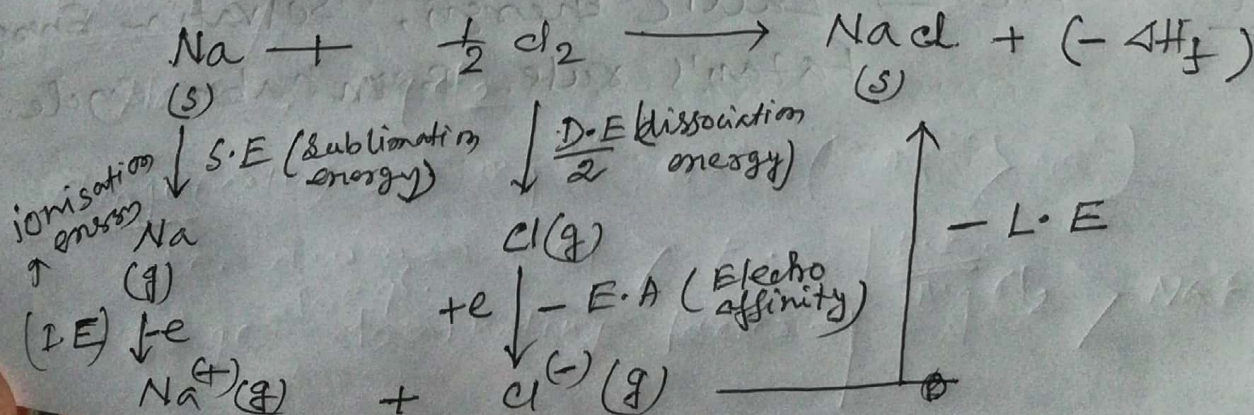 Na + 1/2 Cl2 → NaCl + (- ΔHf)
(s) (s)
↓ S.E (Sublimation energy) ↓ D.E/2 (dissociation energy)
ionisation energy
Na Cl(g) - L.E
(g)
(I.E) ↓ -e +e ↓ - E.A (Electro affinity)
Na(+)(g) + Cl(-)(g)